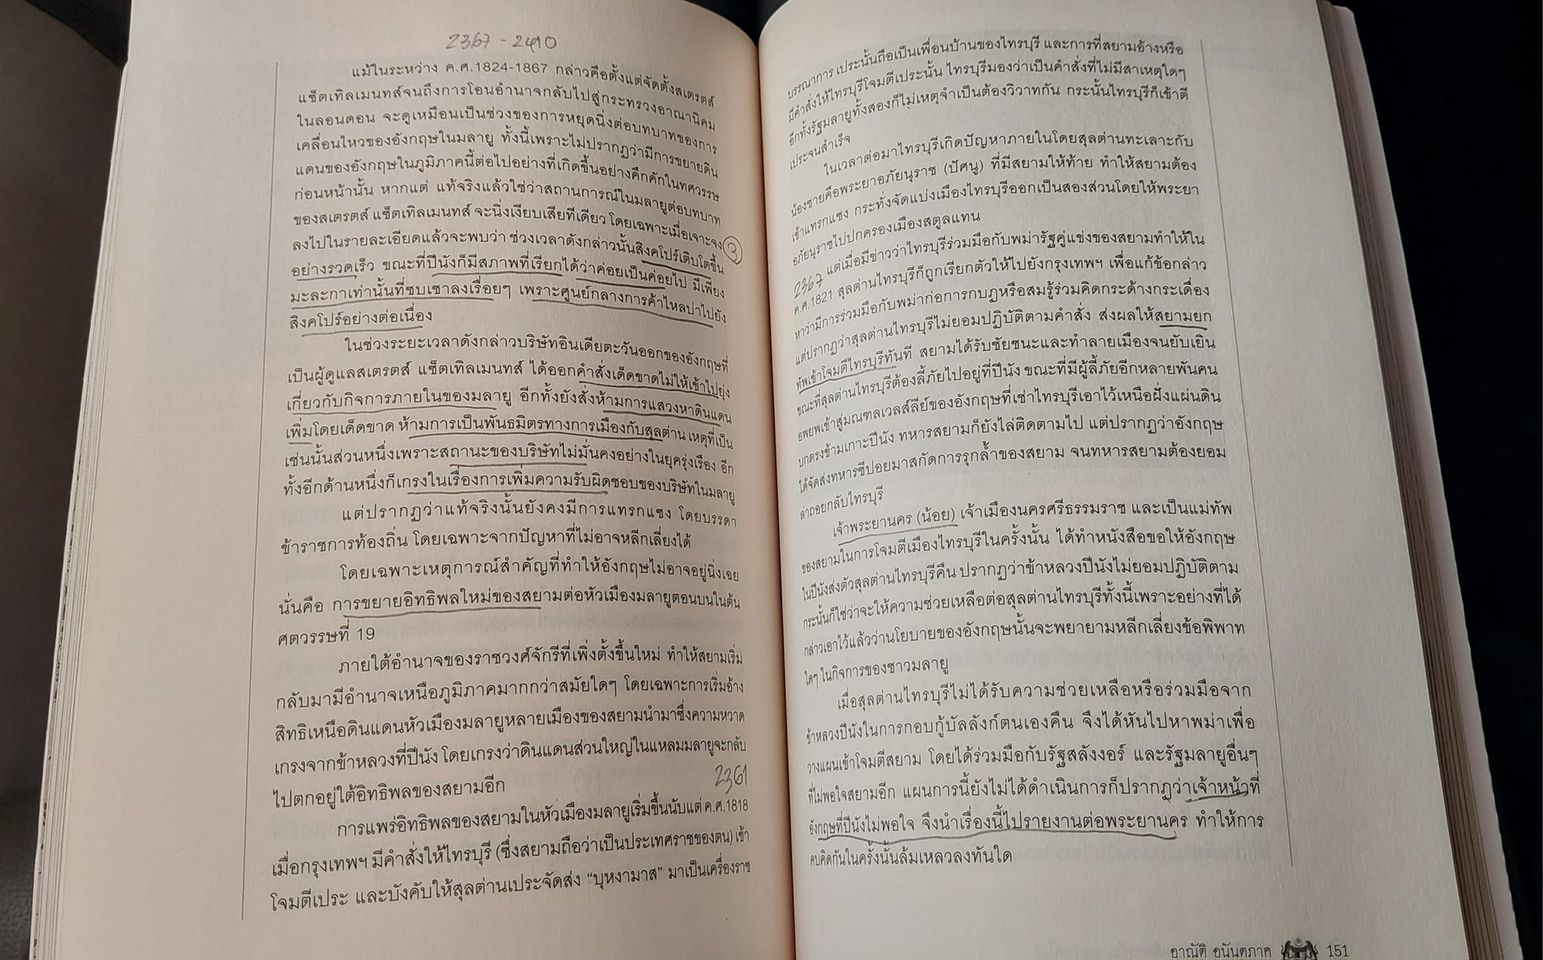 2367 - 2410
แม้ในระหว่าง ค.ศ.1824-1867 กล่าวคือตั้งแต่จัดตั้งสเตรตส์
แซ็ตเทิลเมนทส์จนถึงการโอนอำนาจกลับไปสู่กระทรวงอาณานิคม
ในลอนดอน จะดูเหมือนเป็นช่วงของการหยุดนิ่งต่อบทบาทของการ
เคลื่อนไหวของอังกฤษในมลายู ทั้งนี้เพราะไม่ปรากฏว่ามีการขยายดิน
แดนของอังกฤษในภูมิภาคนี้ต่อไปอย่างที่เกิดขึ้นอย่างคึกคักในทศวรรษ
ก่อนหน้านั้น หากแต่ แท้จริงแล้วใช่ว่าสถานการณ์ในมลายูต่อบทบาท
ของสเตรตส์ แซ็ตเทิลเมนทส์ จะนิ่งเงียบเสียทีเดียว โดยเฉพาะเมื่อเจาะจง
ลงไปในรายละเอียดแล้วจะพบว่า ช่วงเวลาดังกล่าวนั้นสิงคโปร์เติบโตขึ้น
3
อย่างรวดเร็ว ขณะที่ปีนังก็มีสภาพที่เรียกได้ว่าค่อยเป็นค่อยไป มีเพียง
มะละกาเท่านั้นที่ซบเซาลงเรื่อยๆ เพราะศูนย์กลางการค้าไหลบ่าไปยัง
สิงคโปร์อย่างต่อเนื่อง
ในช่วงระยะเวลาดังกล่าวบริษัทอินเดียตะวันออกของอังกฤษที่
เป็นผู้ดูแลสเตรตส์ แซ็ตเทิลเมนทส์ ได้ออกคำสั่งเด็ดขาดไม่ให้เข้าไปยุ่ง
เกี่ยวกับกิจการภายในของมลายู อีกทั้งยังสั่งห้ามการแสวงหาดินแดน
เพิ่มโดยเด็ดขาด ห้ามการเป็นพันธมิตรทางการเมืองกับสุลต่าน เหตุที่เป็น
เช่นนั้นส่วนหนึ่งเพราะสถานะของบริษัทไม่มั่นคงอย่างในยุครุ่งเรือง อีก
ทั้งอีกด้านหนึ่งก็เกรงในเรื่องการเพิ่มความรับผิดชอบของบริษัทในมลายู
แต่ปรากฏว่าแท้จริงนั้นยังคงมีการแทรกแซง โดยบรรดา
ข้าราชการท้องถิ่น โดยเฉพาะจากปัญหาที่ไม่อาจหลีกเลี่ยงได้
โดยเฉพาะเหตุการณ์สำคัญที่ทำให้อังกฤษไม่อาจอยู่นิ่งเฉย
นั่นคือ การขยายอิทธิพลใหม่ของสยามต่อหัวเมืองมลายูตอนบนในต้น
ศตวรรษที่ 19
ภายใต้อำนาจของราชวงศ์จักรีที่เพิ่งตั้งขึ้นใหม่ ทำให้สยามเริ่ม
กลับมามีอำนาจเหนือภูมิภาคมากกว่าสมัยใดๆ โดยเฉพาะการเริ่มอ้าง
สิทธิเหนือดินแดนหัวเมืองมลายูหลายเมืองของสยามนำมาซึ่งความหวาด
เกรงจากข้าหลวงที่ปีนัง โดยเกรงว่าดินแดนส่วนใหญ่ในแหลมมลายูจะกลับ
ไปตกอยู่ใต้อิทธิพลของสยามอีก
2361
การแพร่อิทธิพลของสยามในหัวเมืองมลายูเริ่มขึ้นนับแต่ ค.ศ.1818
เมื่อกรุงเทพฯ มีคำสั่งให้ไทรบุรี (ซึ่งสยามถือว่าเป็นประเทศราชของตน) เข้า
โจมตีเประ และบังคับให้สุลต่านเประจัดส่ง “บุหงามาส” มาเป็นเครื่องราช
บรรณาการ เประนั้นถือเป็นเพื่อนบ้านของไทรบุรี และการที่สยามอ้างหรือ
มีคำสั่งให้ไทรบุรีโจมตีเประนั้น ไทรบุรีมองว่าเป็นคำสั่งที่ไม่มีสาเหตุใดๆ
อีกทั้งรัฐมลายูทั้งสองก็ไม่เหตุจำเป็นต้องวิวาทกัน กระนั้นไทรบุรีก็เข้าตี
เประจนสำเร็จ
ในเวลาต่อมาไทรบุรีเกิดปัญหาภายในโดยสุลต่านทะเลาะกับ
น้องชายคือพระยาอภัยนุราช (ปัศนู) ที่มีสยามให้ท้าย ทำให้สยามต้อง
เข้าแทรกแซง กระทั่งจัดแบ่งเมืองไทรบุรีออกเป็นสองส่วนโดยให้พระยา
อภัยนุราชไปปกครองเมืองสตูลแทน
2367 แต่เมื่อมีข่าวว่าไทรบุรีร่วมมือกับพม่ารัฐคู่แข่งของสยามทำให้ใน
ค.ศ.1821 สุลต่านไทรบุรีก็ถูกเรียกตัวให้ไปยังกรุงเทพฯ เพื่อแก้ข้อกล่าว
หาว่ามีการร่วมมือกับพม่าก่อการกบฏหรือสมรู้ร่วมคิดกระด้างกระเดื่อง
แต่ปรากฏว่าสุลต่านไทรบุรีไม่ยอมปฏิบัติตามคำสั่ง ส่งผลให้สยามยก
ทัพเข้าโจมตีไทรบุรีทันที สยามได้รับชัยชนะและทำลายเมืองจนยับเยิน
ขณะที่สุลต่านไทรบุรีต้องลี้ภัยไปอยู่ที่ปีนัง ขณะที่มีผู้ลี้ภัยอีกหลายพันคน
อพยพเข้าสู่มณฑลเวลส์ลีย์ของอังกฤษที่เช่าไทรบุรีเอาไว้เหนือฝั่งแผ่นดิน
บกตรงข้ามเกาะปีนัง ทหารสยามก็ยังไล่ติดตามไป แต่ปรากฏว่าอังกฤษ
ได้จัดส่งทหารซีปอยมาสกัดการรุกล้ำของสยาม จนทหารสยามต้องยอม
ล่าถอยกลับไทรบุรี
เจ้าพระยานคร (น้อย) เจ้าเมืองนครศรีธรรมราช และเป็นแม่ทัพ
ของสยามในการโจมตีเมืองไทรบุรีในครั้งนั้น ได้ทำหนังสือขอให้อังกฤษ
ในปีนังส่งตัวสุลต่านไทรบุรีคืน ปรากฏว่าข้าหลวงปีนังไม่ยอมปฏิบัติตาม
กระนั้นก็ใช่ว่าจะให้ความช่วยเหลือต่อสุลต่านไทรบุรีทั้งนี้เพราะอย่างที่ได้
กล่าวเอาไว้แล้วว่านโยบายของอังกฤษนั้นจะพยายามหลีกเลี่ยงข้อพิพาท
ใดๆ ในกิจการของชาวมลายู
เมื่อสุลต่านไทรบุรีไม่ได้รับความช่วยเหลือหรือร่วมมือจาก
ข้าหลวงปีนังในการกอบกู้บัลลังก์ตนเองคืน จึงได้หันไปหาพม่าเพื่อ
วางแผนเข้าโจมตีสยาม โดยได้ร่วมมือกับรัฐสลังงอร์ และรัฐมลายูอื่นๆ
ที่ไม่พอใจสยามอีก แผนการนี้ยังไม่ได้ดำเนินการก็ปรากฏว่าเจ้าหน้าที่
อังกฤษที่ปีนังไม่พอใจ จึงนำเรื่องนี้ไปรายงานต่อพระยานคร ทำให้การ
คบคิดกันในครั้งนั้นล้มเหลวลงทันใด
อาณัติ อนันตภาค 151